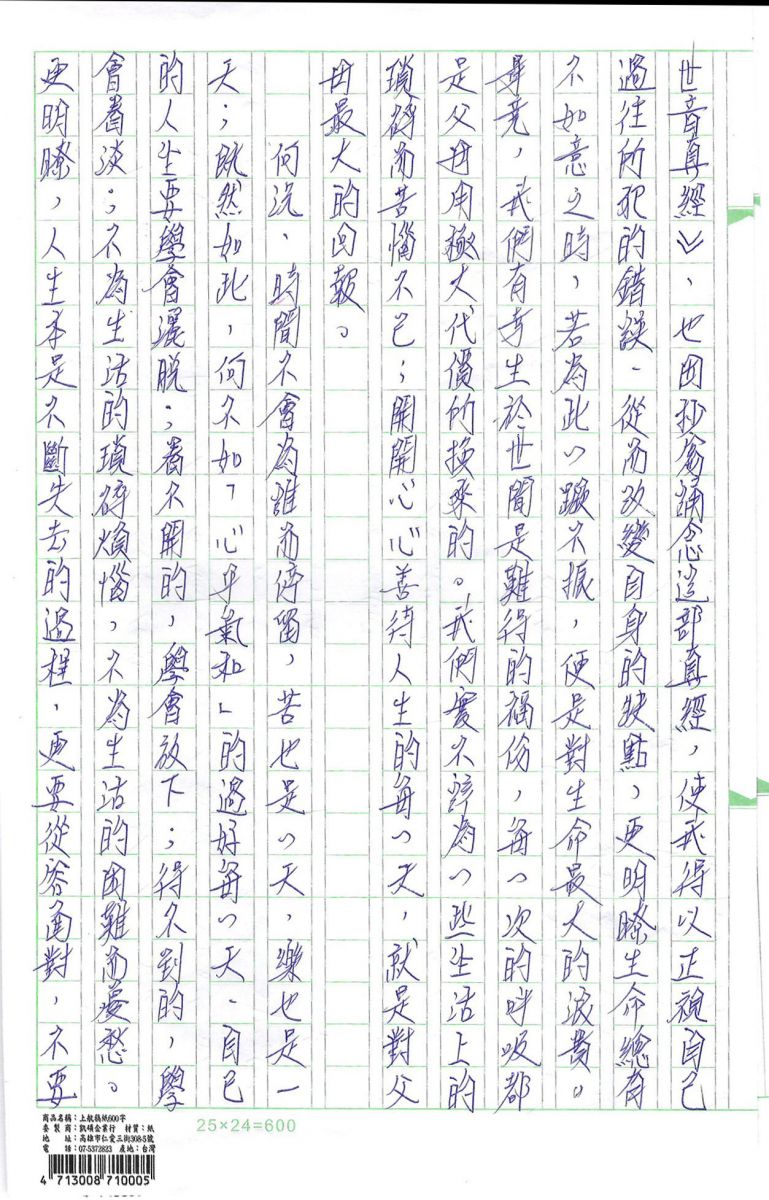 世音真經》，也因抄寫誦念這部真經，使我得以正視自己
過往所犯的錯誤，從而改變自身的缺點，更明瞭生命總有
不如意之時，若為此一蹶不振，便是對生命最大的浪費。
畢竟，我們有幸生於世間是難得的福份，每一次的呼吸都
是父母用極大代價所換來的。我們實不該為一些生活上的
瑣碎而苦惱不已；開開心心善待人生的每一天，就是對父
母最大的回報。
何況，時間不會為誰而停留，苦也是一天，樂也是一
天；既然如此，何不如「心平氣和」的過好每一天，自己
的人生要學會灑脫；看不開的，學會放下；得不到的，學
會看淡；不為生活的瑣碎煩惱，不為生活的困難而憂愁。
更明瞭，人生本是不斷失去的過程，更要從容面對，不要
25×24=600
商品名稱：上航稿紙600字
委製商：凱碩企業行 材質：紙
地址：高雄市仁愛三街308-5號
電話：07-5372823 產地：台灣
4 713008 710005